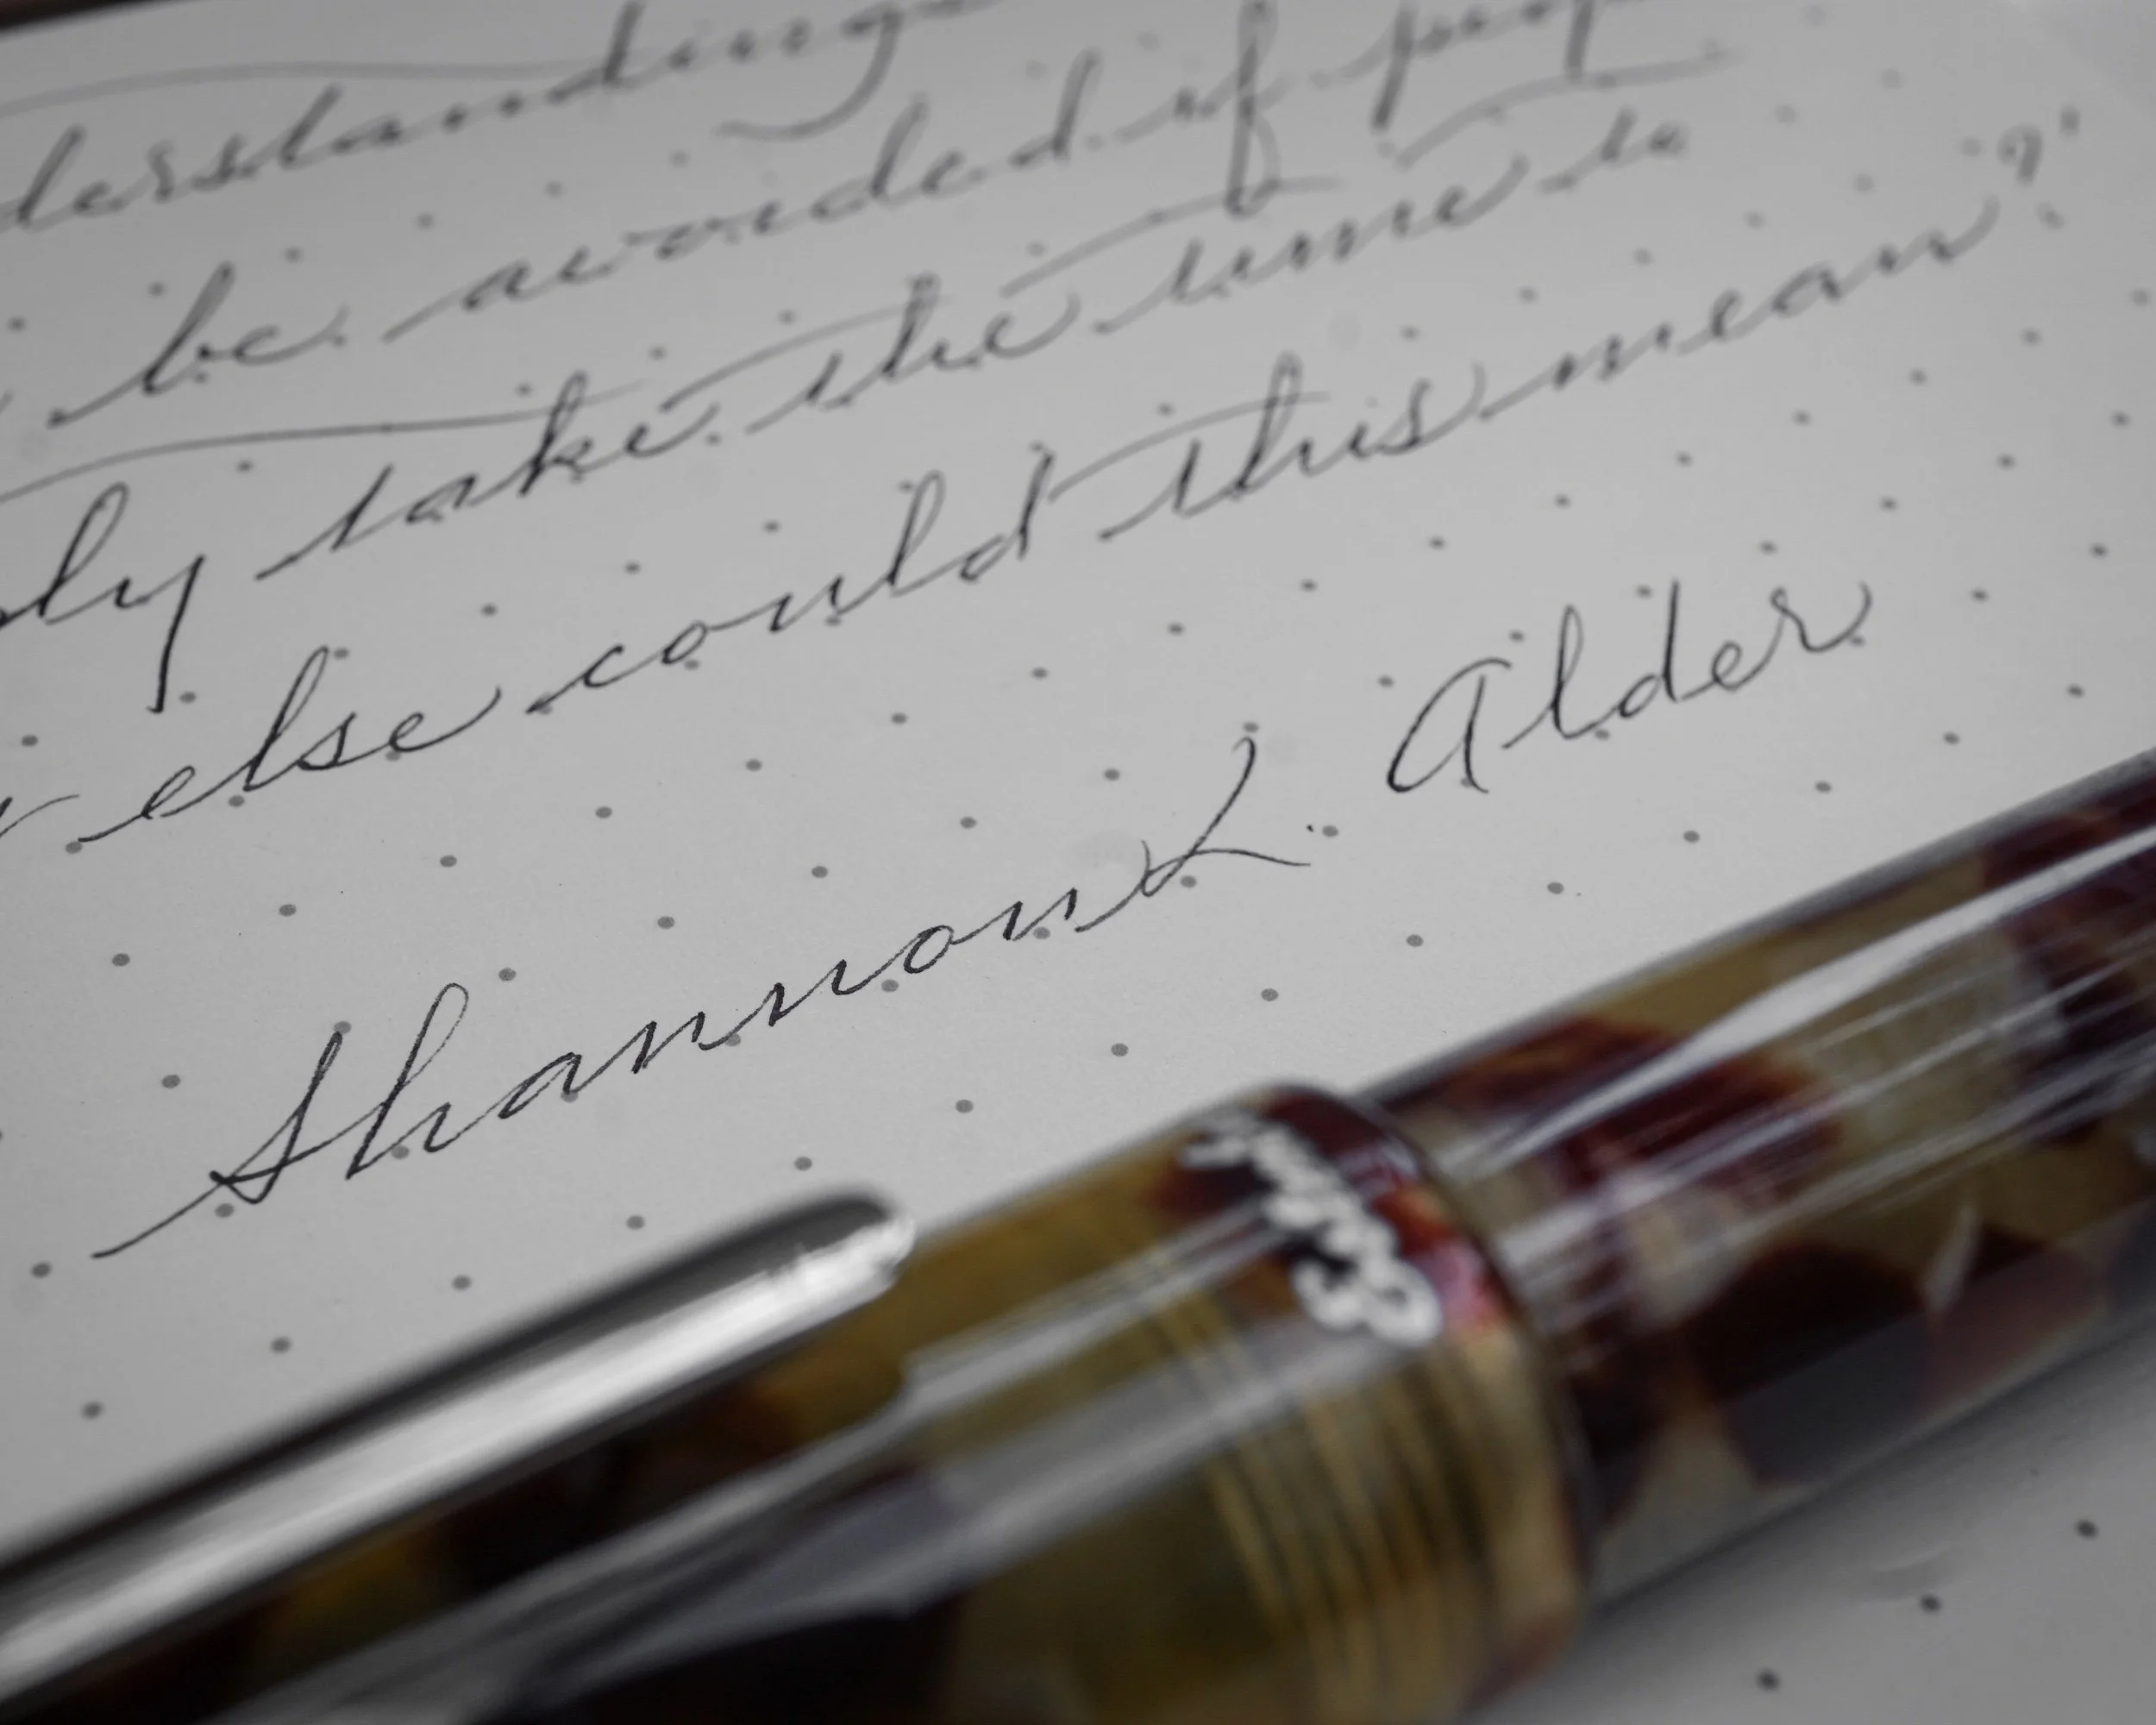 derstandings
be avoided if peop
ly take the time to
else could this mean?'
Shannon L. Alder